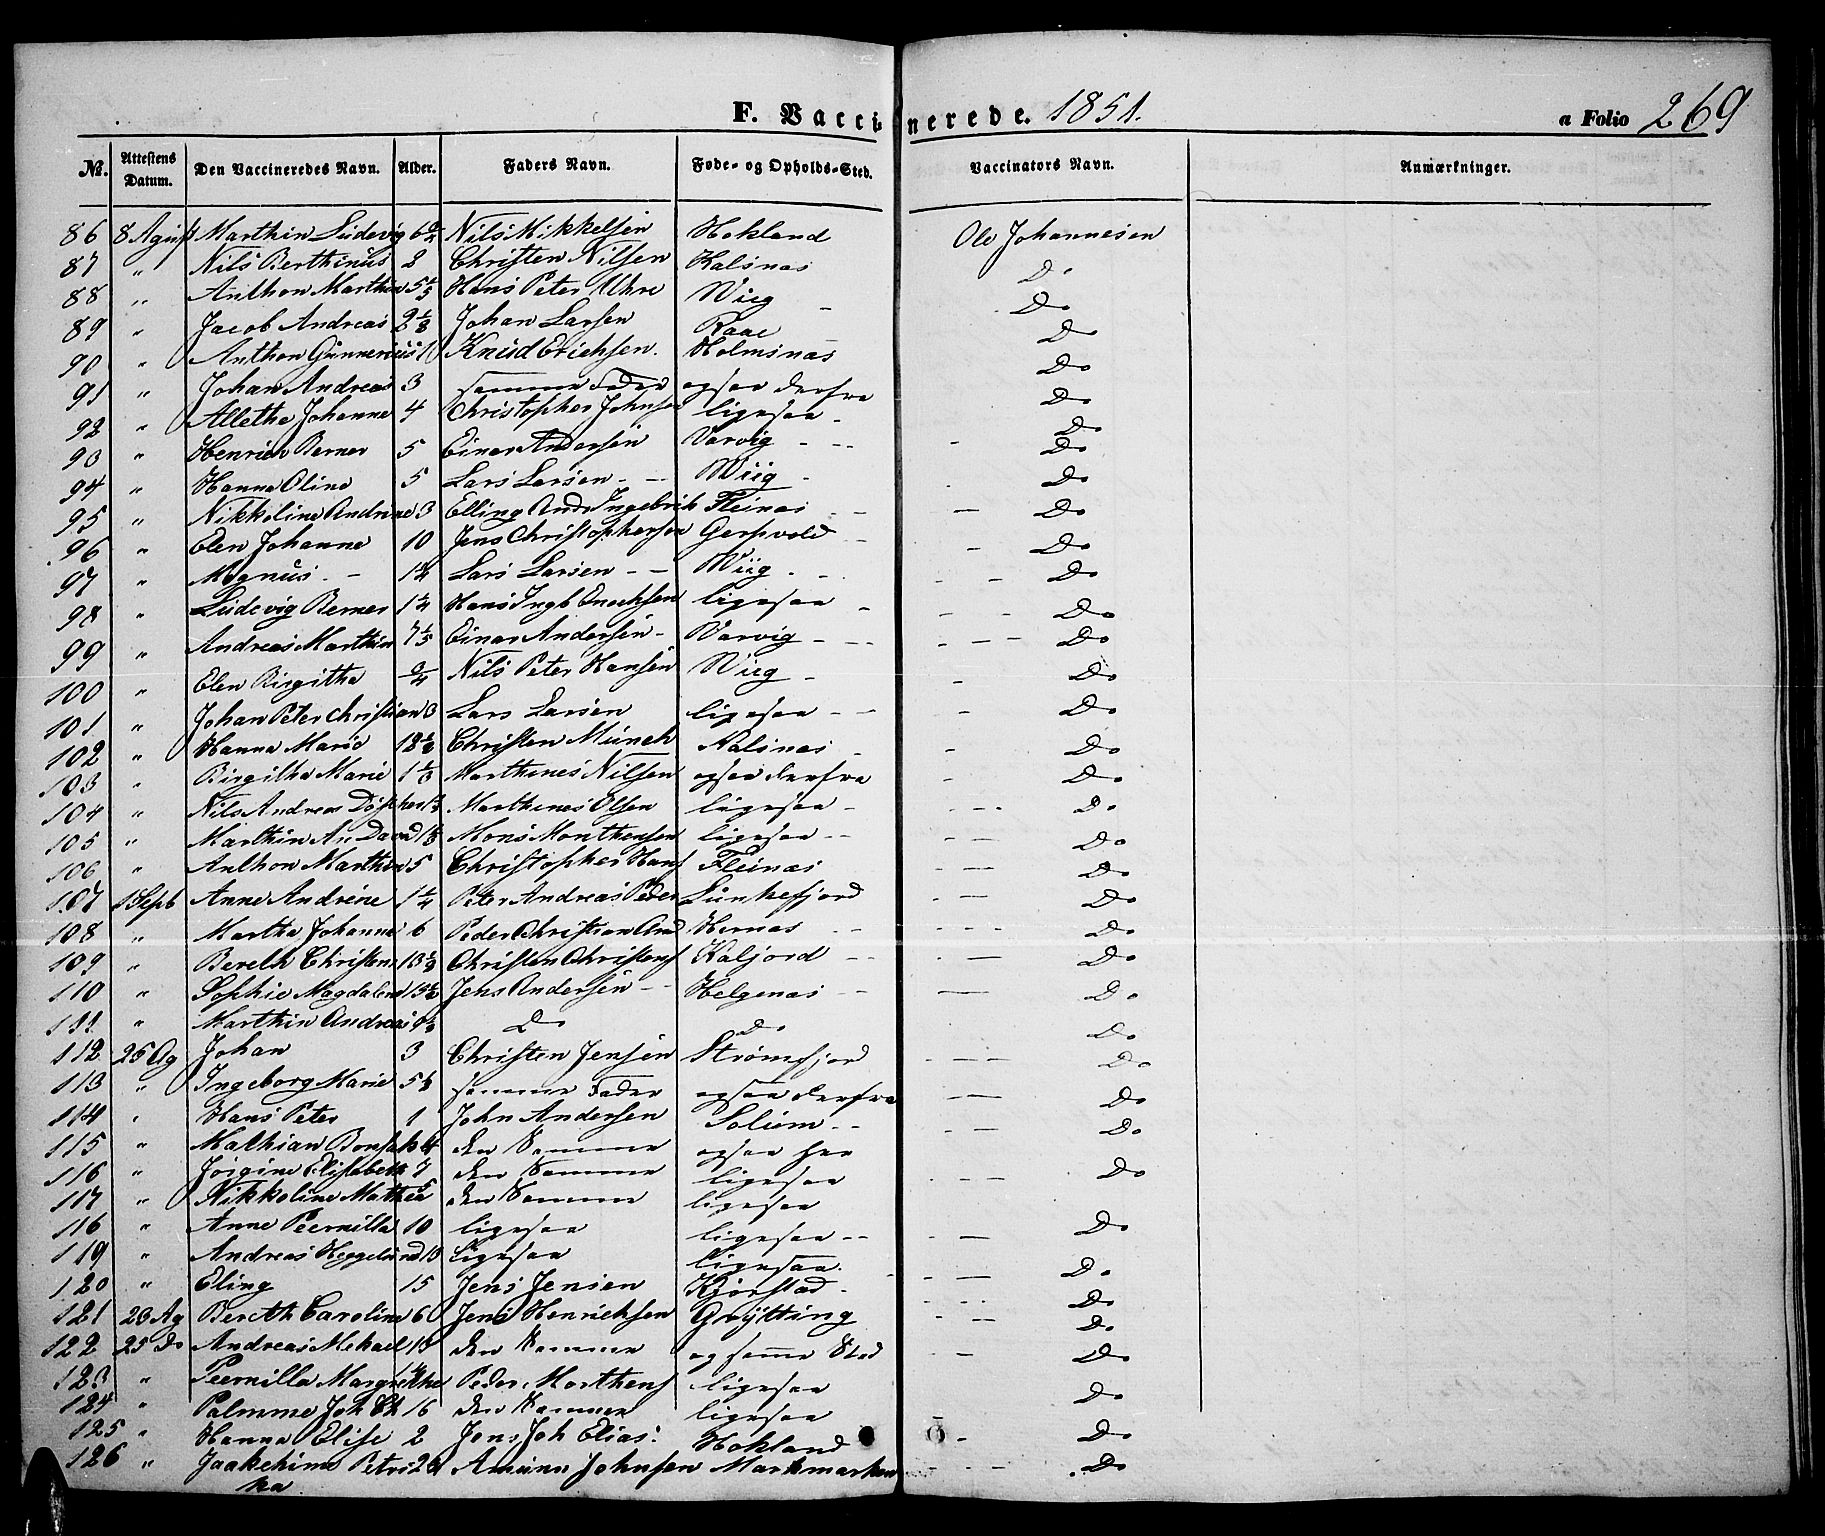 F. Vaccinerede. 1851. a Folio 269
No. Attestens Datum. Den Vaccineredes Navn. Alder. Faders Navn. Føde- og Opholds-Sted. Vaccinators Navn. Anmærkninger.
86 8 Agust Marthin Ludevig 6 3/4 Nils Mikkelsen Hokland Ole Johannesen
87 " Nils Berthinus 2 Christen Nilsen Kalsnas Do
88 " Anthon Marthin 5 1/5 Hans Peter Uhre Wieg Do
89 " Jacob Andreas 2 1/8 Johan Larsen Raae Do
90 " Anthon Gunnerius 11 Knud Erichsen. Holmsnas Do
91 " Johan Andreas 3 samme Fader ogsaa derfra Do
92 " Allethe Johanne 4 Christopher Johnsen ligesaa Do
93 " Henrich Berner 5 Einar Andersen Varvig Do
94 " Hanna Oline 5 Lars Larsen Wiig Do
95 " Nikkoline Andrine 3 Elling Andr Ingebrik Fleinas Do
96 " Elen Johanne 10 Jens Christophersen Do
97 " Magnus 1 1/4 Lars Larsen Wiig Do
98 " Ludevig Berner 1 1/4 Hans Ingb ligesaa Do
99 " Andreas Marthin 7 1/5 Einar Andersen Varvig Do
100 " Elen Birgitha 3/4 Nils Peter Hansen Wieg Do
101 " Johan Peter Christian 3 Lars Larsen ligesaa Do
102 " Hanna Marie 18 1/2 Christen Münch Kalsnas Do
103 " Birgitha Marie 1 1/3 Marthenes Nilsen ogsaa derfra Do
104 " Nils Andreas Marthenes Olsen ligesaa Do
105 " Marthin An David Mons Monthensen ligesaa Do
106 " Anthon Marthin 5 Christopher Hans Fleinas Do
107 1 Sept Anne Andrine 1 1/4 Peter Andreas Peder Lunkefjord Do
108 " Martha Johanne 6 Peder Christian And Hernas Do
109 " Bereth Christens Christen Christens Kaljord Do
110 " Sophie Magdalene 15 1/2 Jens Andersen Helgenas Do
111 " Marthin Andreas Do Do Do
112 25 Ag Johan 3 Christen Jensen Strømsfjord Do
113 " Ingeborg Marie 5 1/2 samme Fader ogsaa derfra Do
114 " Hans Peter 1 John Andersen Solum Do
115 " Mathian 4 den Samme ogsaa her
116 " Jørgine Elisabeth 7 den Samme ligesaa Do
117 " Nikkoline Mathea 5 den Samme ligesaa
116 " Anne Peernilla 10 ligesaa ligesaa Do
119 " Andreas Heggelund 13 Ligesaa ligesaa Do
120 " Eling 15 Jens Jensen Kjørstad Do
121 23 Ag Bereth Caroline 6 Jens Henrichsen Grÿtting Do
122 25 Do Andreas Mekael 13 den Samme og samme Sted Do
123 " Peernilla Margrethe 14 Peder Morthens ligesaa Do
124 " Joh Ch 16 den Samme ligesaa
125 " Hanna Elise 2 Jens Joh Elias: Hokland Do
126 " Jaakehime Petri Amund Johnsen Markmarken Do
ka